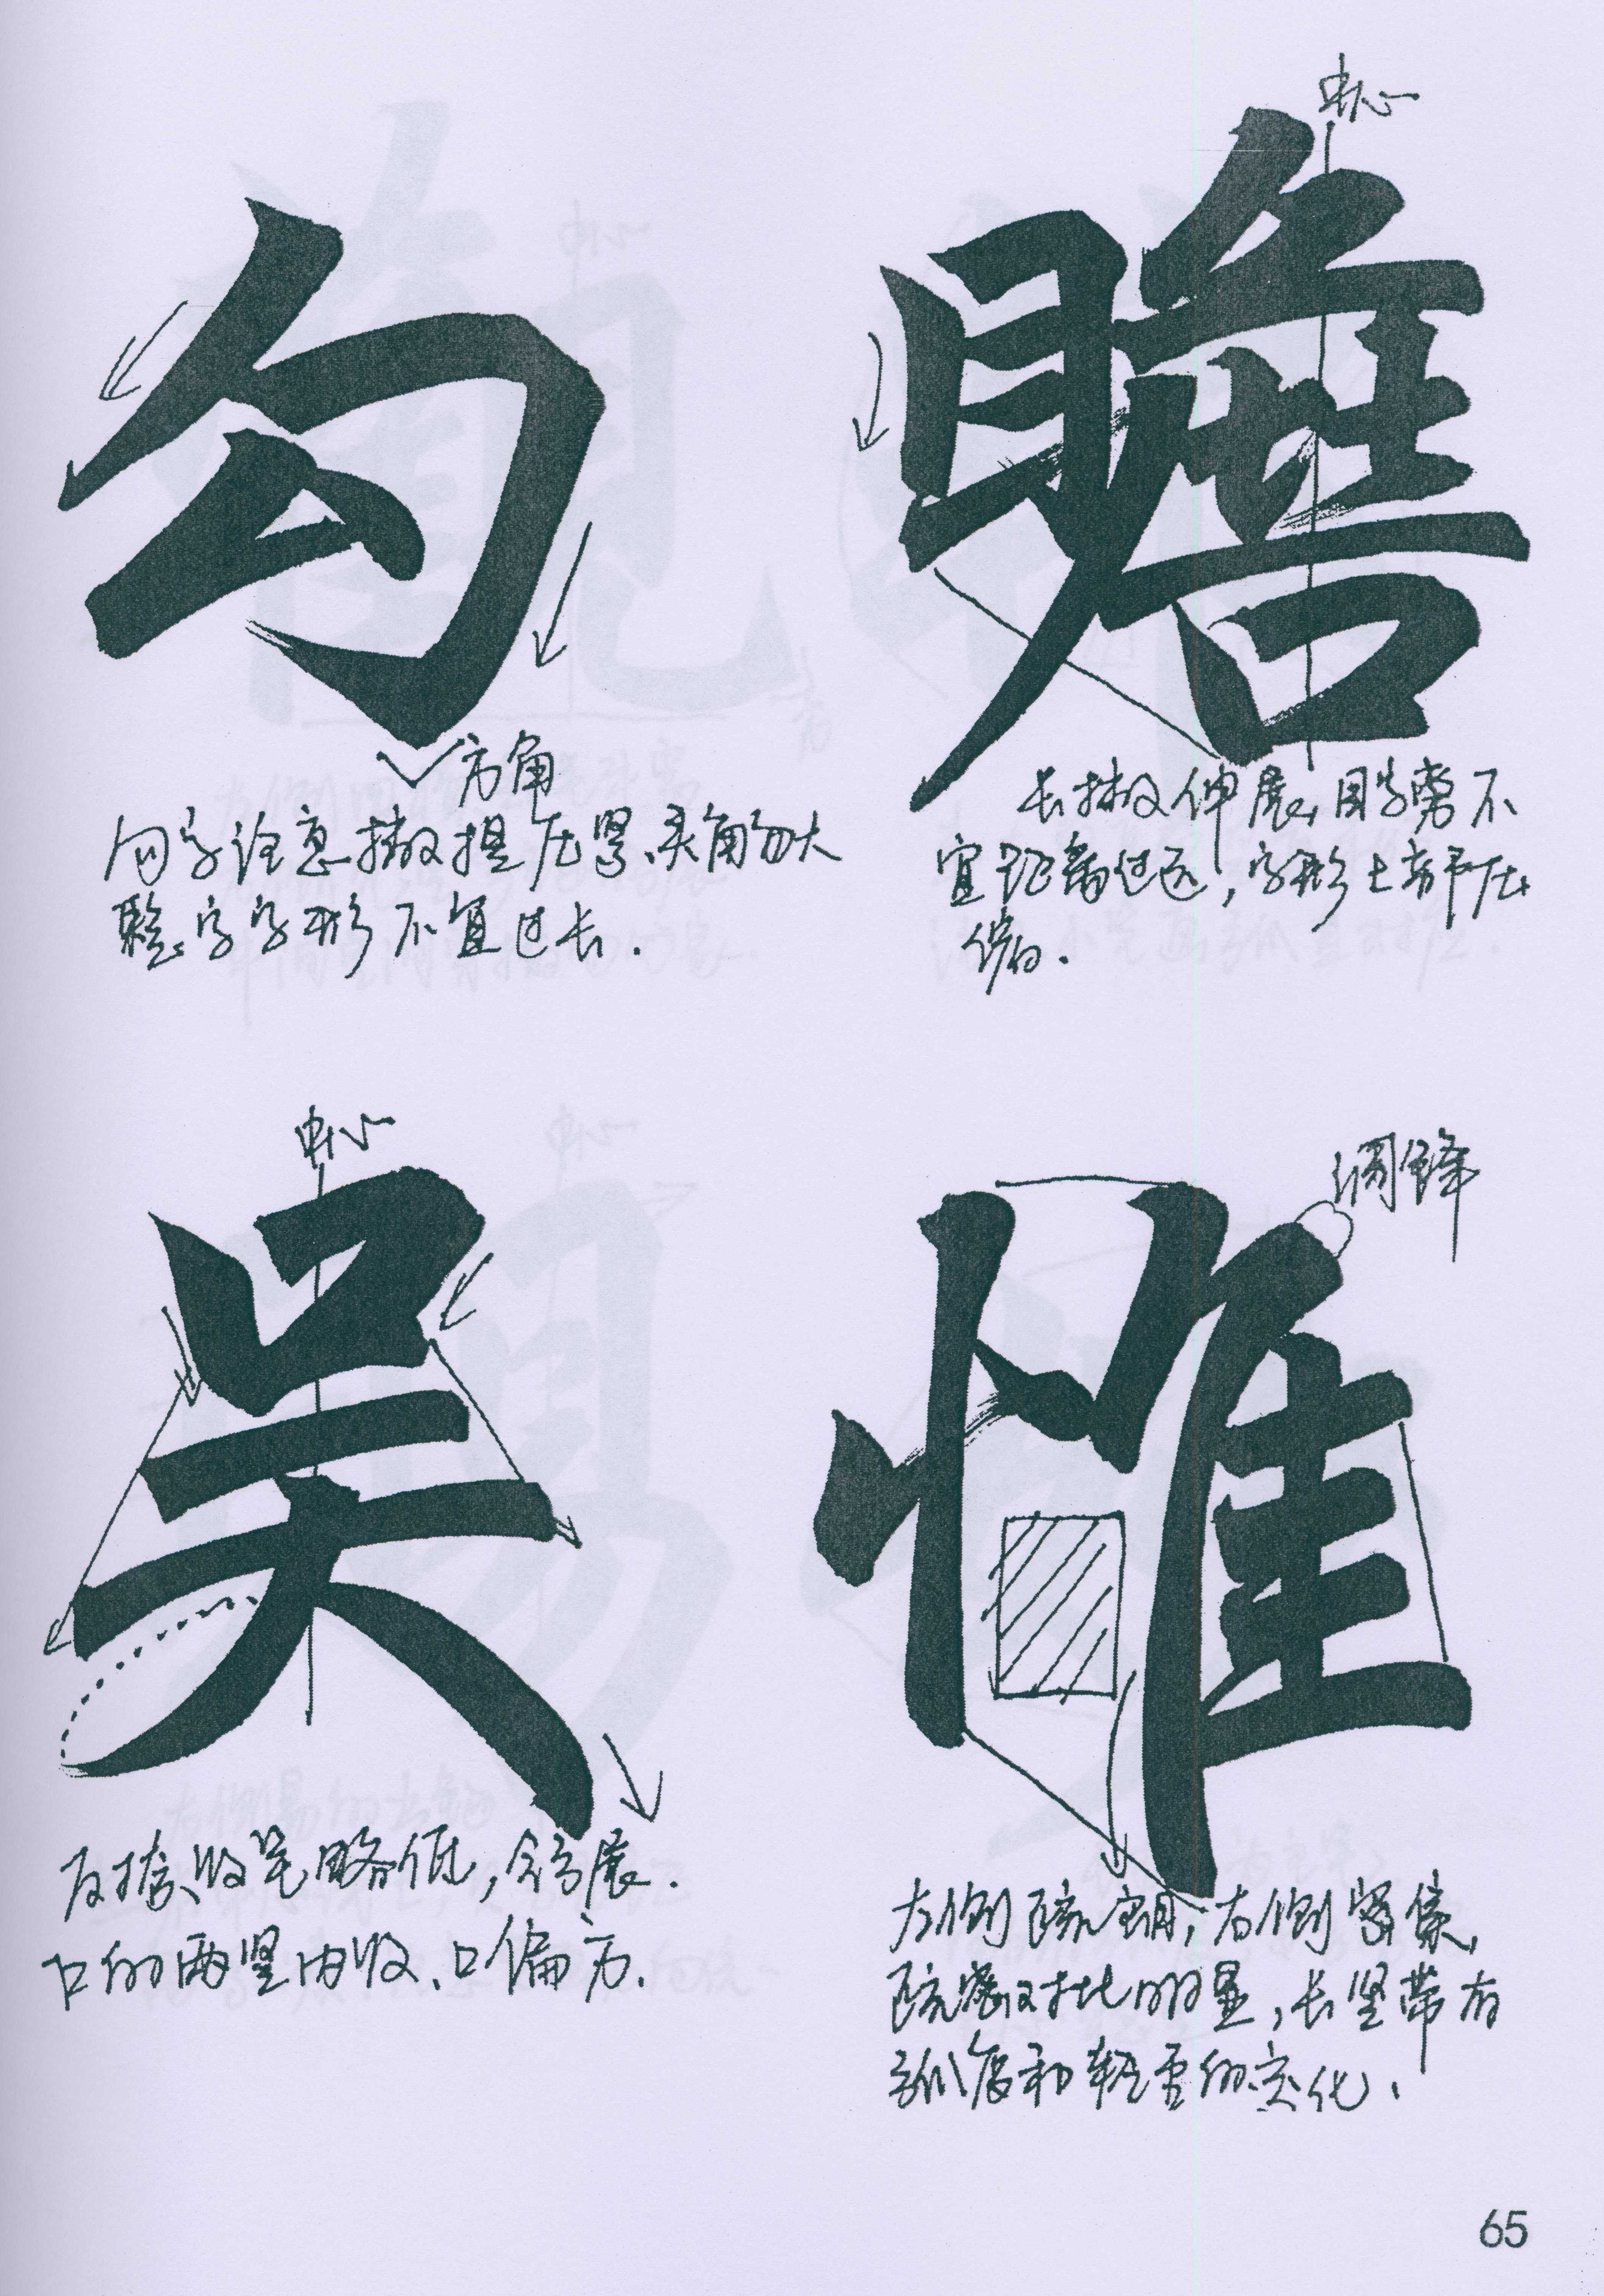 中心
勾
瞻
方角
勾字注意撇提压紧、夹角勿大
整字字形不宜过长.
长撇伸展,目字旁不
宜距离过远,字形上部压
偏.
中心
调锋
吴
惟
反捺、收笔略低,舒展.
口的两竖内收、口偏方.
左侧疏朗,右侧紧集,
疏密对比明显,长竖带有
弧度和轻重的变化、
65